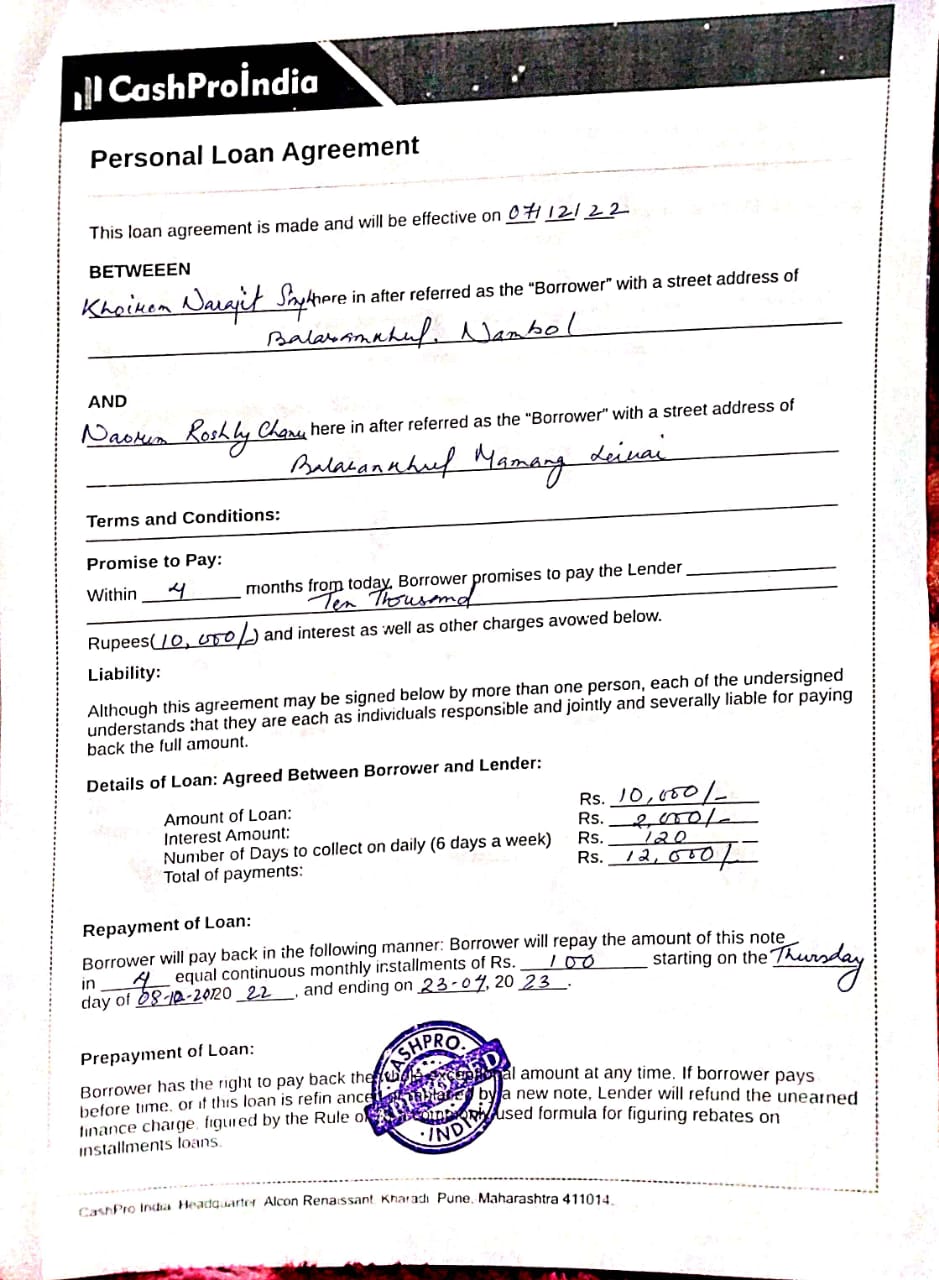 CashProIndia
Personal Loan Agreement
This loan agreement is made and will be effective on 07/12/22
BETWEEEN
Khoirom Narajit Singh here in after referred as the “Borrower” with a street address of
Nambol
AND
Naorem Roshly Chanu here in after referred as the “Borrower” with a street address of
Mamang Leikai
Terms and Conditions:
Promise to Pay:
Within 4 months from today, Borrower promises to pay the Lender
Ten Thousand
Rupees(10,000/-) and interest as well as other charges avowed below.
Liability:
Although this agreement may be signed below by more than one person, each of the undersigned
understands that they are each as individuals responsible and jointly and severally liable for paying
back the full amount.
Details of Loan: Agreed Between Borrower and Lender:
Amount of Loan: Rs. 10,000/-
Interest Amount: Rs. 2,000/-
Number of Days to collect on daily (6 days a week) Rs. 120
Total of payments: Rs. 12,000/-
Repayment of Loan:
Borrower will pay back in the following manner: Borrower will repay the amount of this note
in 4 equal continuous monthly installments of Rs. 100 starting on the Thursday
day of 08-12-2020 22, and ending on 23-04, 20 23.
Prepayment of Loan:
Borrower has the right to pay back the amount at any time. If borrower pays
before time, or if this loan is refinanced by a new note, Lender will refund the unearned
finance charge, figured by the Rule of used formula for figuring rebates on
installments loans.
CASHPRO
APPROVED
INDIA
CashPro India Headquarter Alcon Renaissant Kharadi Pune, Maharashtra 411014.